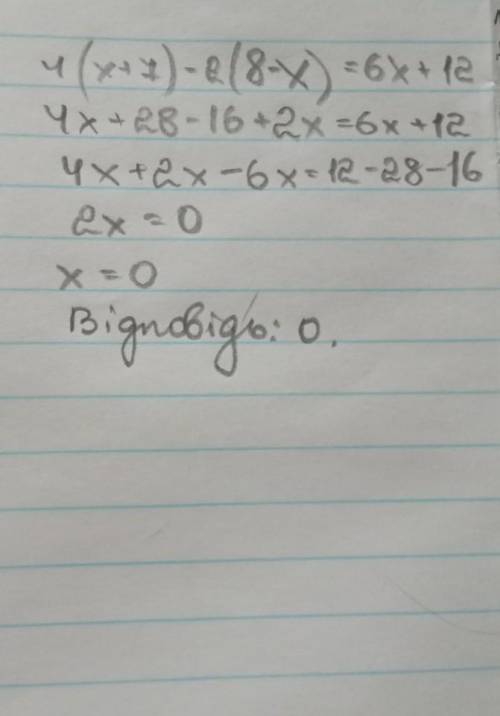 4(x+7)-2(8-x)=6x+12
4x+28-16+2x=6x+12
4x+2x-6x=12-28-16
2x=0
x=0
Відповідь: 0.